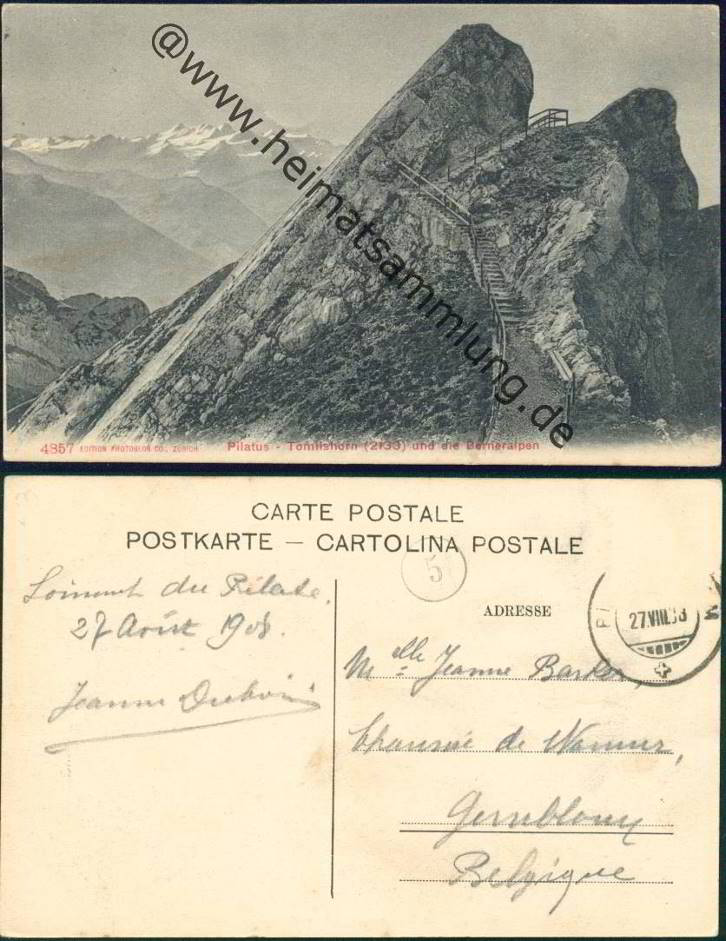 @www.heimatsammlung.de
4857 EDITION PHOTOGLOB CO., ZÜRICH
Pilatus - Tomlishorn (2133) und die Berneralpen
CARTE POSTALE
POSTKARTE — CARTOLINA POSTALE
5
Sommet du Pilate.
27 Août 1908.
Jeanne Dubois
ADRESSE
27.VIII.
Melle Jeanne
Chaussée de Namur,
Gembloux
Belgique